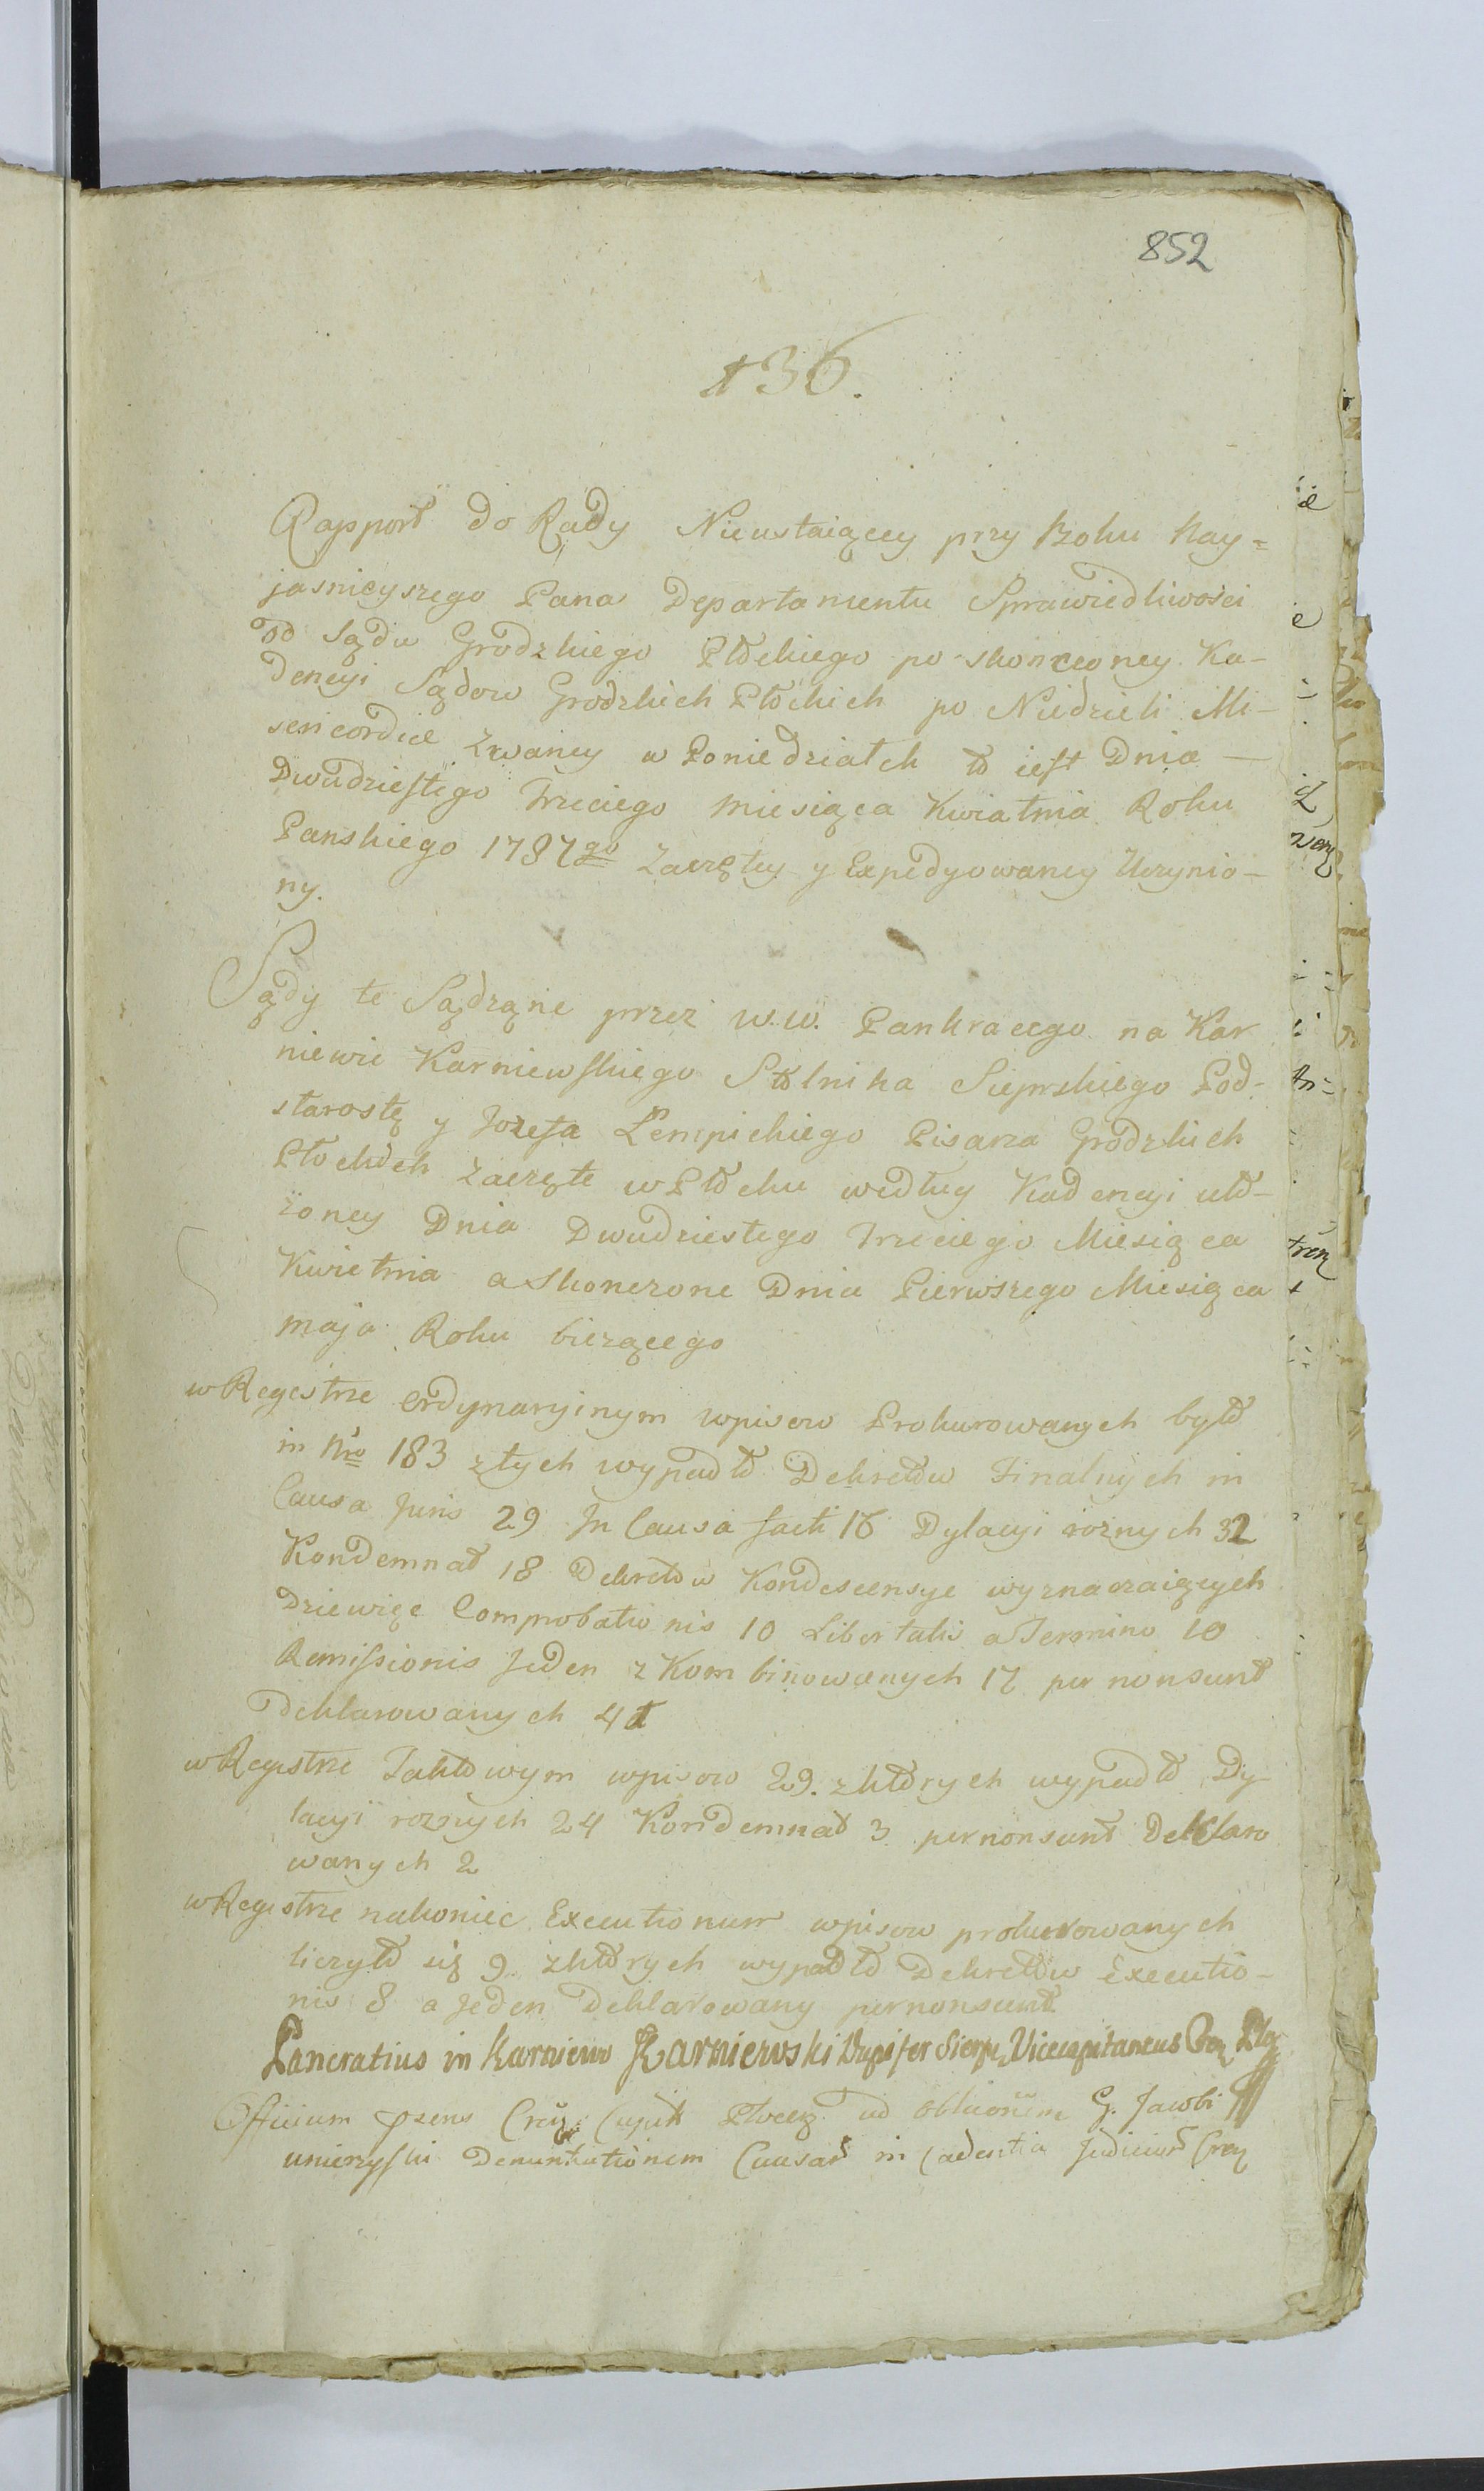 852
136.
Rapport do Rady Nieustaiącey przy Boku Nay=
jasnieyszego Pana Departamentu Sprawiedliwości
od Sądu Grodzkiego Płockiego po skonczoney Ka-
dencyi Sądow Grodzkich Płockich po Niedzieli Mi-
sericordiæ zwaney w Poniedziałek to iest Dnia —
Dwudziestego Trzeciego Miesiąca Kwiatnia Roku
Panskiego 1787go Zaczętey y Expedyowaney Uczynio-
ny.
Sądy te Sądzone przez W.W. Pankracego na Kar
niewie Karniewskiego Stolnika Sieprskiego Pod-
starostę y Jozefa Lempickiego Pisarza Grodzkich
Płockich zaczęte w Płocku według Kadencyi uło-
żoney Dnia Dwudziestego Trzeciego Miesiąca
Kwietnia a Skonczone Dnia Pierwszego Miesiąca
Maja Roku bieżącego
w Regestrze Ordynaryinym wpisow Prokurowanych było
in Nro 183 z tych wypadło Dekretow Finalnych in
Causa Juris 29 In Causa facti 16 Dylacyi roznych 32
Kondemnat 18 Dekretow Kondescensye wyznaczaiących
Dziewięc Comprobationis 10 Libertatis a Termino 10
Remissionis Jeden z Kombinowanych 17 per non sunt
Deklarowanych 41
w Regestrze Taktowym wpisow 29. z ktorych wypadło Dy
lacyi roznych 24 Kondemnat 3 per non sunt Deklaro
wanych 2
w Regestrze nakoniec Executionum wpisow prokurowanych
liczyło się 9 z ktorych wypadło Dekretow Executio-
nis 8 a Jeden Deklarowany per non sunt
Pancratius in Karniewo Karniewski Dapifer Sierp. Vicecapitaneus
Officium psens Plocen ad Jacobi
unierzyski Denuntiationem Causar in Cadentia Judicior